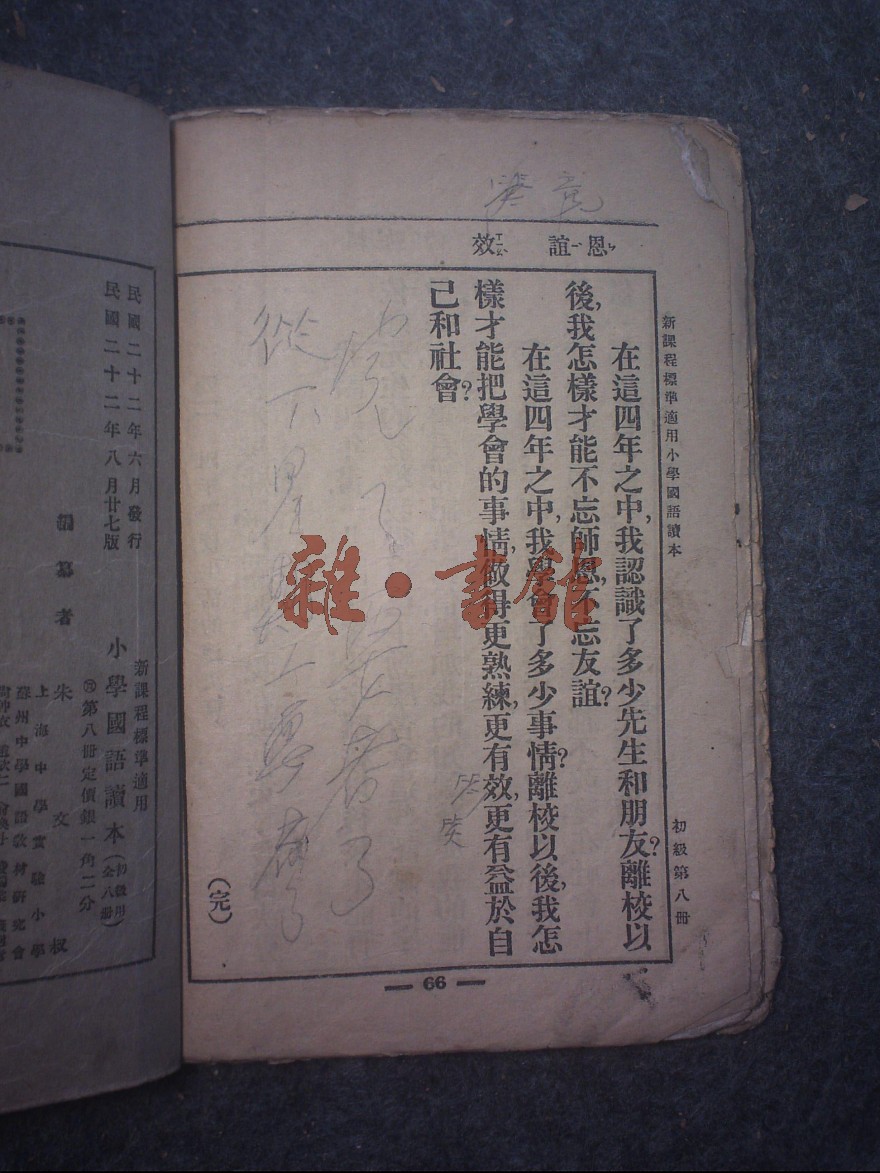 恩 誼 效
新課程標準適用小學國語讀本
初級第八冊
在這四年之中,我認識了多少先生和朋友?離校以
後,我怎樣才能不忘師恩,不忘友誼?
在這四年之中,我學會了多少事情?離校以後,我怎
樣才能把學會的事情,做得更熟練,更有效,更有益於自
己和社會?
(完)
— 66 —
雜·書館
新課程標準適用
小學國語讀本(初級用)(全八冊)
第八冊定價銀一角二分
編纂者
朱文叔
上海中學實驗小學
蘇州中學國語教材研究會
民國二十二年六月發行
民國二十二年八月廿七版